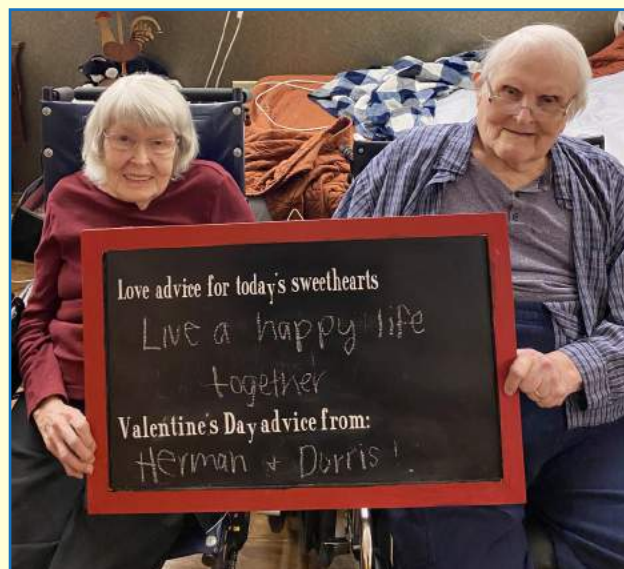 Love advice for today's sweethearts
Live a happy life
together
Valentine's Day advice from:
Herman + Dorris!